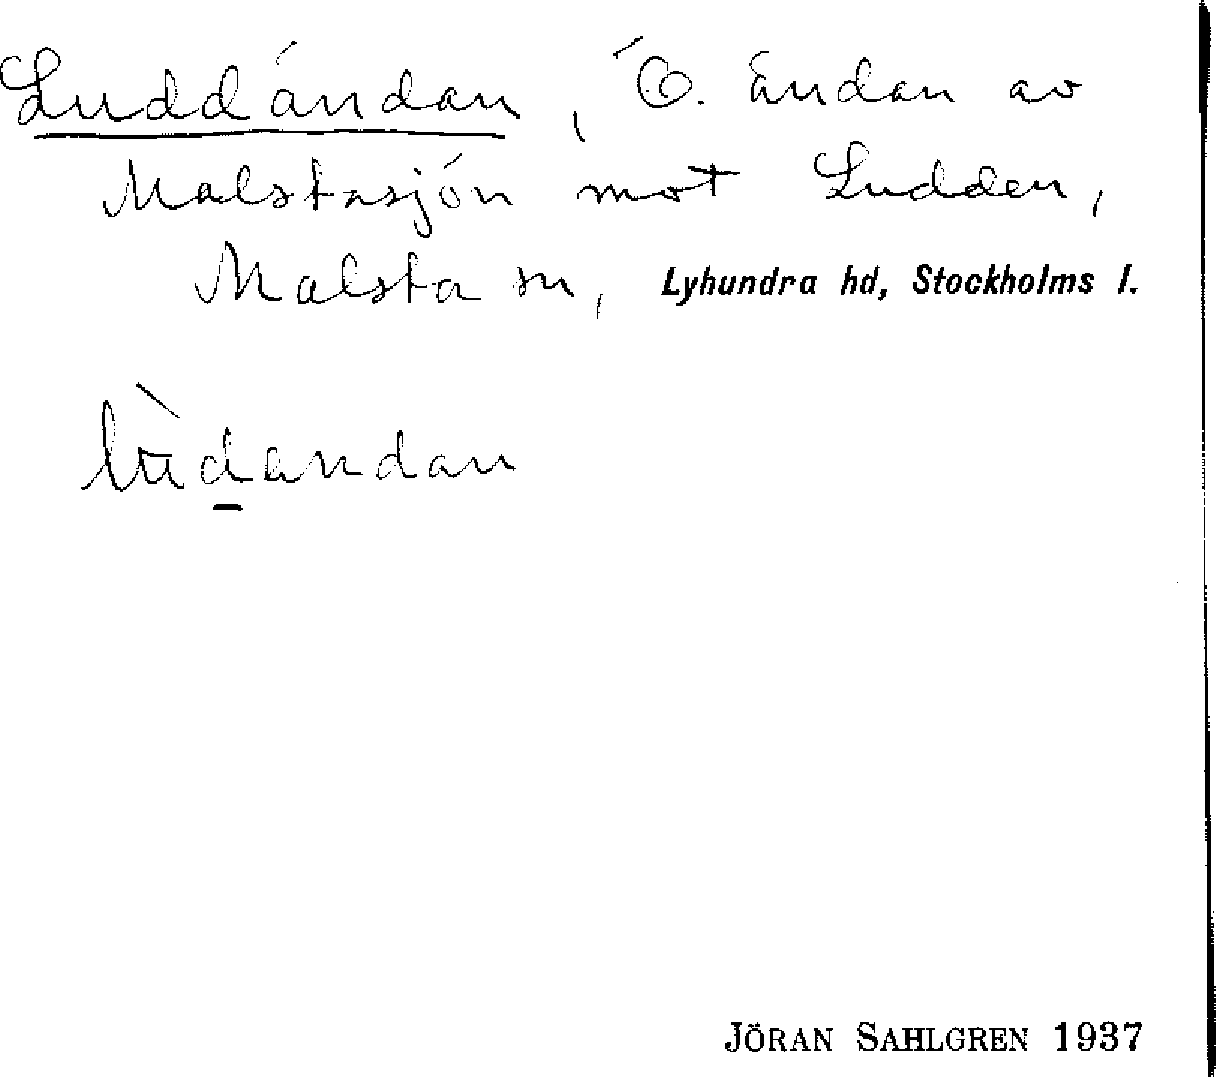 Luddändan, Ö. ändan av
Malstasjön mot Ludden,
Malsta sn, Lyhundra hd, Stockholms l.
lùd̲andan
JÖRAN SAHLGREN 1937